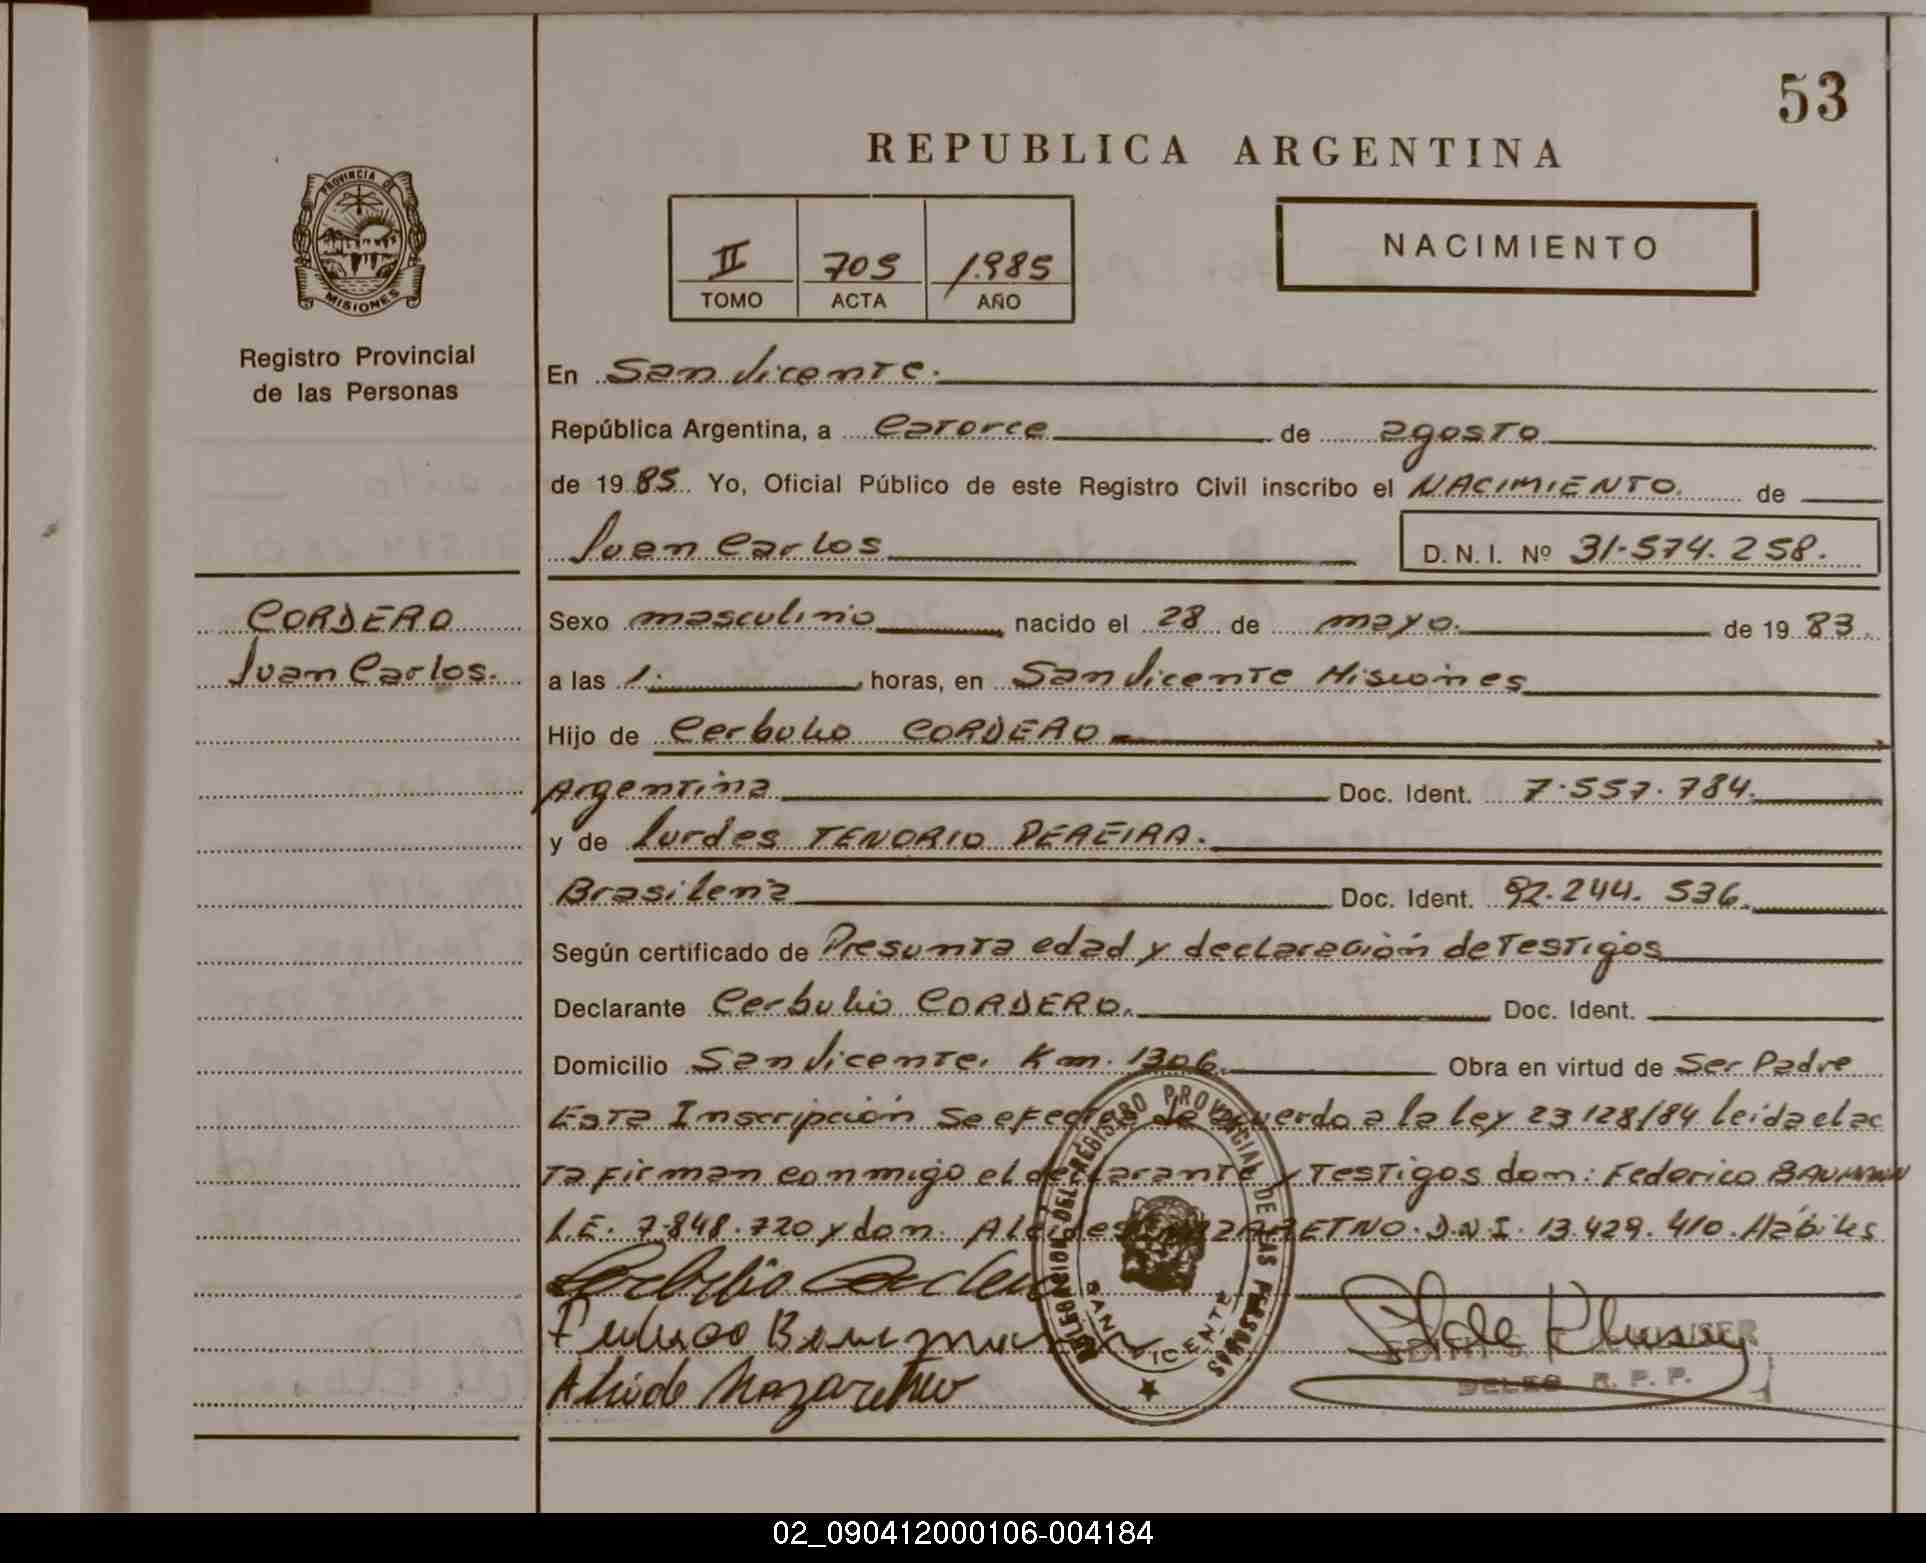 53
REPUBLICA ARGENTINA
PROVINCIA DE
MISIONES
Registro Provincial
de las Personas
II 705 1.985
TOMO ACTA AÑO
NACIMIENTO
En San Vicente.
República Argentina, a Catorce de agosto
de 19 85 Yo, Oficial Público de este Registro Civil inscribo el NACIMIENTO. de
Juan Carlos D.N.I. Nº 31.574.258.
CORDERO
Juan Carlos.
Sexo masculino nacido el 28 de mayo. de 19 83.
a las 1. horas, en San Vicente Misiones
Hijo de Cerbulio CORDERO
Argentina Doc. Ident. 7.557.784.
y de Lurdes TENORIO PEREIRA.
Brasileña Doc. Ident. 92.244.536.
Según certificado de Presunta edad y declaración de Testigos
Declarante Cerbulio CORDERO. Doc. Ident.
Domicilio San Vicente. Km. 1306. Obra en virtud de Ser Padre
Esta Inscripción se efectua de acuerdo a la ley 23128/84 leida el ac
ta firman conmigo el declarante y Testigos don: Federico BAUMANN
L.E. 7.848.720 y don. NAZARETNO. D.N.I. 13.429.410. Hábiles
DELEGACION DEL REGISTRO PROVINCIAL DE LAS PERSONAS
SAN VICENTE
DELEG R. P. P.
02_090412000106-004184